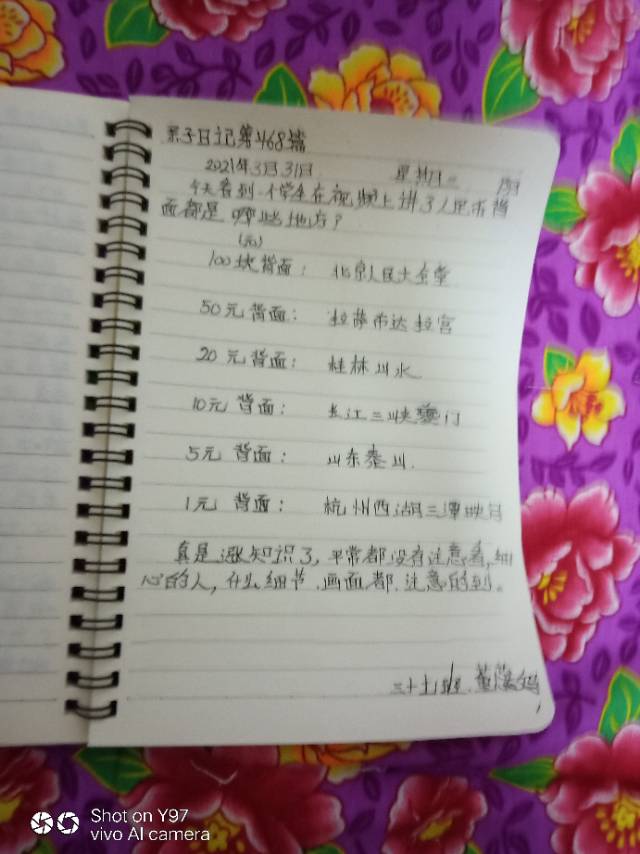 亲子日记第468篇
2021年3月31日 星期三 阴
今天看到一个学生在视频上讲了人民币背
面都是哪些地方?
(元)
100块背面: 北京人民大会堂
50元背面: 拉萨布达拉宫
20元背面: 桂林山水
10元背面: 长江三峡夔门
5元背面: 山东泰山.
1元背面: 杭州西湖三潭映月
真是涨知识了,平常都没有注意看,细
心的人,什么细节.画面都.注意的到。
三十七班.董
Shot on Y97
vivo AI camera